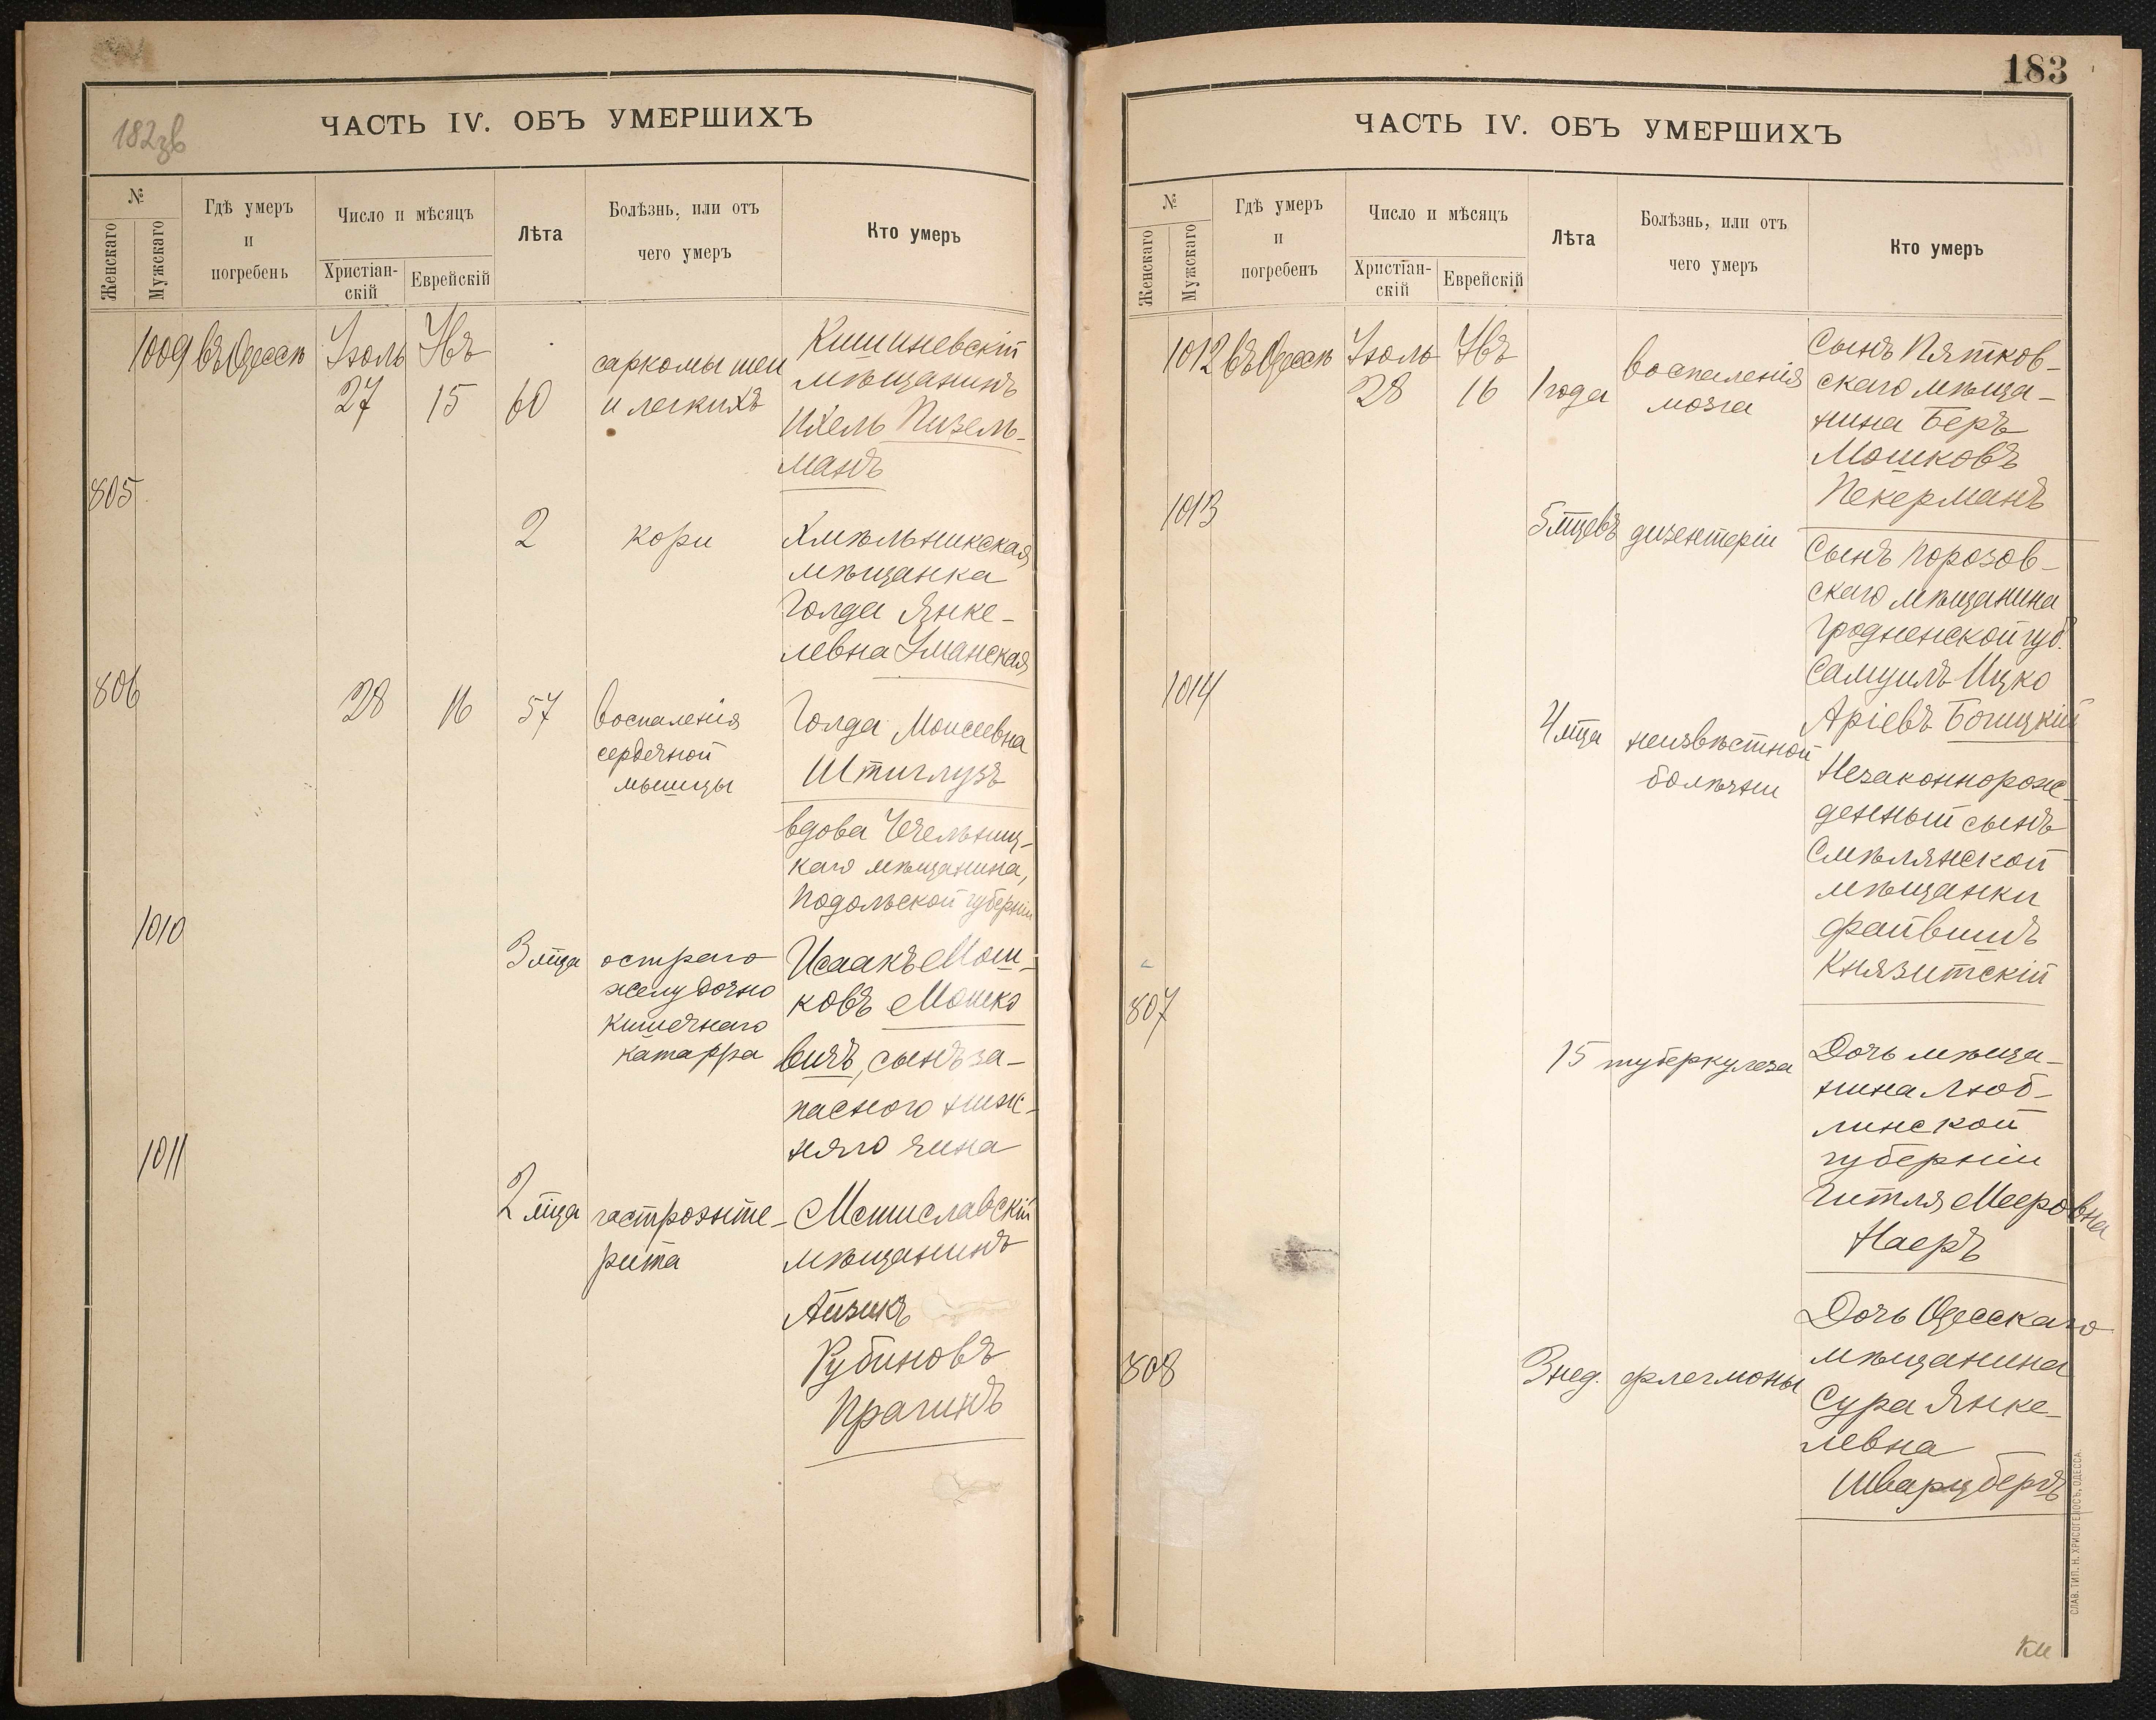 182зв
ЧАСТЬ IV. ОБЪ УМЕРШИХЪ
№
Женскаго
Мужскаго
Гдѣ умеръ
и
погребенъ
Число и мѣсяцъ
Христіан-
скій
Еврейскій
Лѣта
Болѣзнь, или отъ
чего умеръ
Кто умеръ
1009 въ Одессѣ Іюль Авъ
27 15 60
саркомы шеи
и легкихъ
Кишиневскій
мѣщанинъ
Ихель Пизель-
манъ
805
2 кори
Хмѣльникская
мѣщанка
Голда Янке-
левна Уманская
806 28 16 57
воспаленія
сердечной
мышцы
Голда Моисеевна
Штиглузъ
вдова Чечельниц-
каго мѣщанина,
Подольской губерніи
1010
3 мца
остраго
желудочно
кишечнаго
катарра
Исаакъ Мош-
ковъ Мошко
вичъ, сынъ за-
пасного ниж-
няго чина
1011
2 мца
гастроэнте-
рита
Мстиславскій
мѣщанинъ
Айзикъ
Рубиновъ
Прагинъ
183
ЧАСТЬ IV. ОБЪ УМЕРШИХЪ
№
Женскаго
Мужскаго
Гдѣ умеръ
и
погребенъ
Число и мѣсяцъ
Христіан-
скій
Еврейскій
Лѣта
Болѣзнь, или отъ
чего умеръ
Кто умеръ
1012 въ Одессѣ Іюль Авъ
28 16 1 года
воспаленія
мозга
Сынъ Пятков-
скаго мѣща-
нина Беръ
Мошковъ
Пекерманъ
1013
5 мцевъ дизентеріи
Сынъ Порозов-
скаго мѣщанина
Гродненской губ.
Самуилъ Ицко
Аріевъ Богицкій
1014
4 мца
неизвѣстной
болѣзни
Незаконнорож-
денный сынъ
Смѣлянской
мѣщанки
Файвишъ
Князитскій
807
15 туберкулеза
Дочь мѣща-
нина Люб-
линской
губерніи
Гитля Мееровна
Наеръ
808
3 нед. флегмоны
Дочь Одесскаго
мѣщанина
Сура Янке-
левна
Шварцбергъ
СЛАВ. ТИП. Н. ХРИСОГЕЛОСЪ, ОДЕССА.